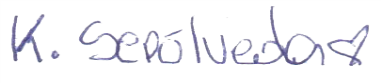 K. Sepúlveda